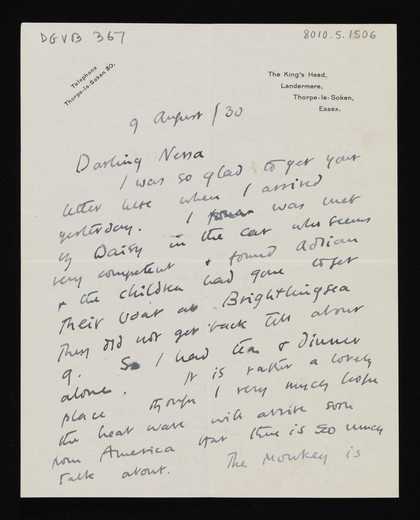 DGVB 367
8010.5.1506
Telephone
Thorpe-le-Soken 80.
The King's Head,
Landermere,
Thorpe-le-Soken,
Essex.
9 August /30
Darling Nessa
I was so glad to get your
letter here when I arrived
yesterday. I was met
by Daisy in the car who seems
very competent & found Adrian
& the children had gone to get
their boat at Brightlingsea
They did not get back till about
9. So I had tea & dinner
alone. It is rather a lovely
place though I very much hope
the heat wave will arrive soon
from America that there is so much
talk about. The Monkey is